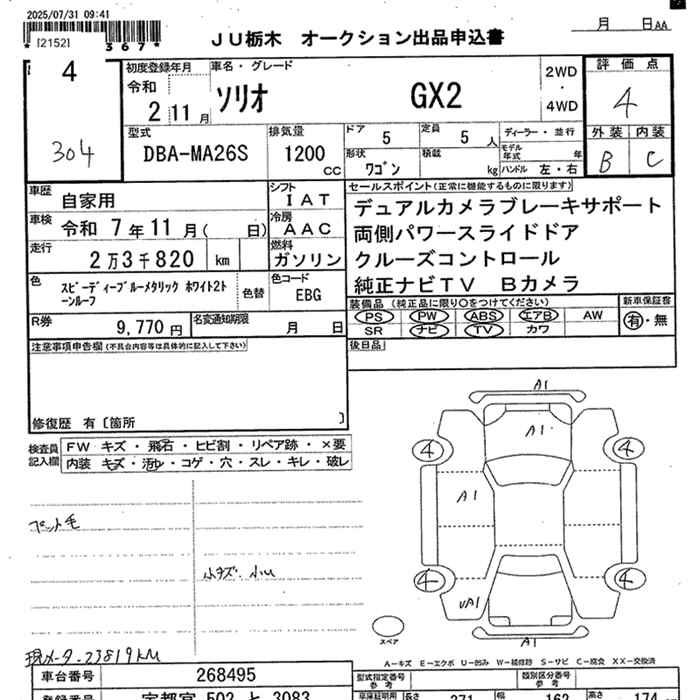 2025/07/31 09:41
* [2152] 367 *
JU栃木 オークション出品申込書
月 日 AA
4
304
初度登録年月
令和
2 11 月
車名・グレード
ソリオ GX2
2WD
・
4WD
評価点
4
外装 内装
B C
型式
DBA-MA26S
排気量
1200
CC
ドア 5
定員 5 人
形状 ワゴン
積載 kg
ディーラー・並行
モデル年式 年
ハンドル 左・右
車歴 自家用
シフト IAT
車検 令和 7年11月( 日)
冷房 AAC
走行 2万3千820 km
燃料 ガソリン
セールスポイント(正常に機能するものに限ります)
デュアルカメラブレーキサポート
両側パワースライドドア
クルーズコントロール
純正ナビTV Bカメラ
色 スピーディーブルーメタリック ホワイト2トーンルーフ
色替
色コード EBG
R券 9,770 円
名変通知期限 月 日
装備品(純正品に限り○をつけてください)
PS PW ABS エアB AW
SR ナビ TV カワ
新車保証書
有・無
後日品
注意事項申告欄(不具合内容等は具体的に記入して下さい)
修復歴 有〔箇所 〕
検査員記入欄
FW キズ・飛石・ヒビ割・リペア跡・×要
内装 キズ・汚れ・コゲ・穴・スレ・キレ・破レ
ペット毛
小キズ・小凹
現メーター23819KM
A1
A1
A1
4 4
4 4
UA1
A1
スペア
A-キズ E-エクボ U-凹み W-補修跡 S-サビ C-腐食 XX-交換済
車台番号 268495
型式指定番号 参考
類別区分番号 参考
登録番号 宇都宮 502 と 3083
長さ 371 幅 162 高さ 174